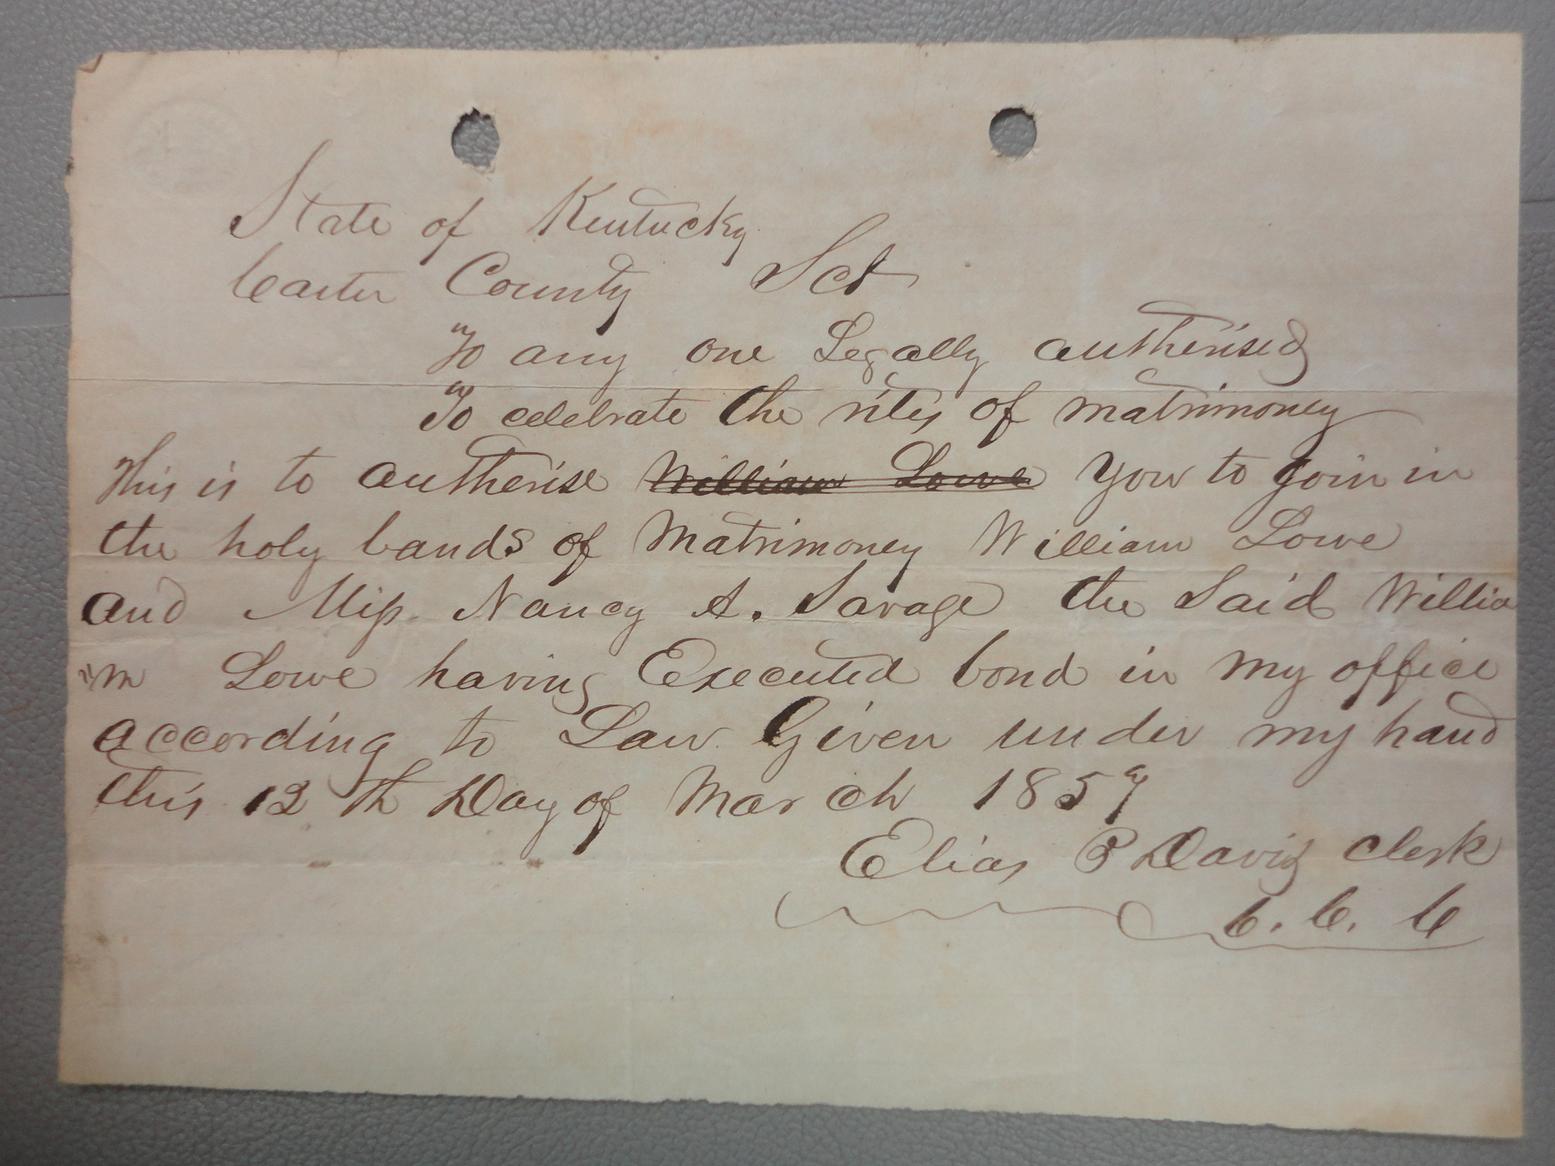 State of Kentucky
Carter County Sct
To any one Legally autherised
To celebrate the rites of matrimoney
This is to autherise ~~William Lowe~~ you to join in
the holy bands of Matrimoney William Lowe
and Miss Nancy A. Savage the Said Willia
"m Lowe having Executed bond in my office
according to Law Given under my hand
this 12 th Day of March 1859
Elias P Davis Clerk
C. C. C